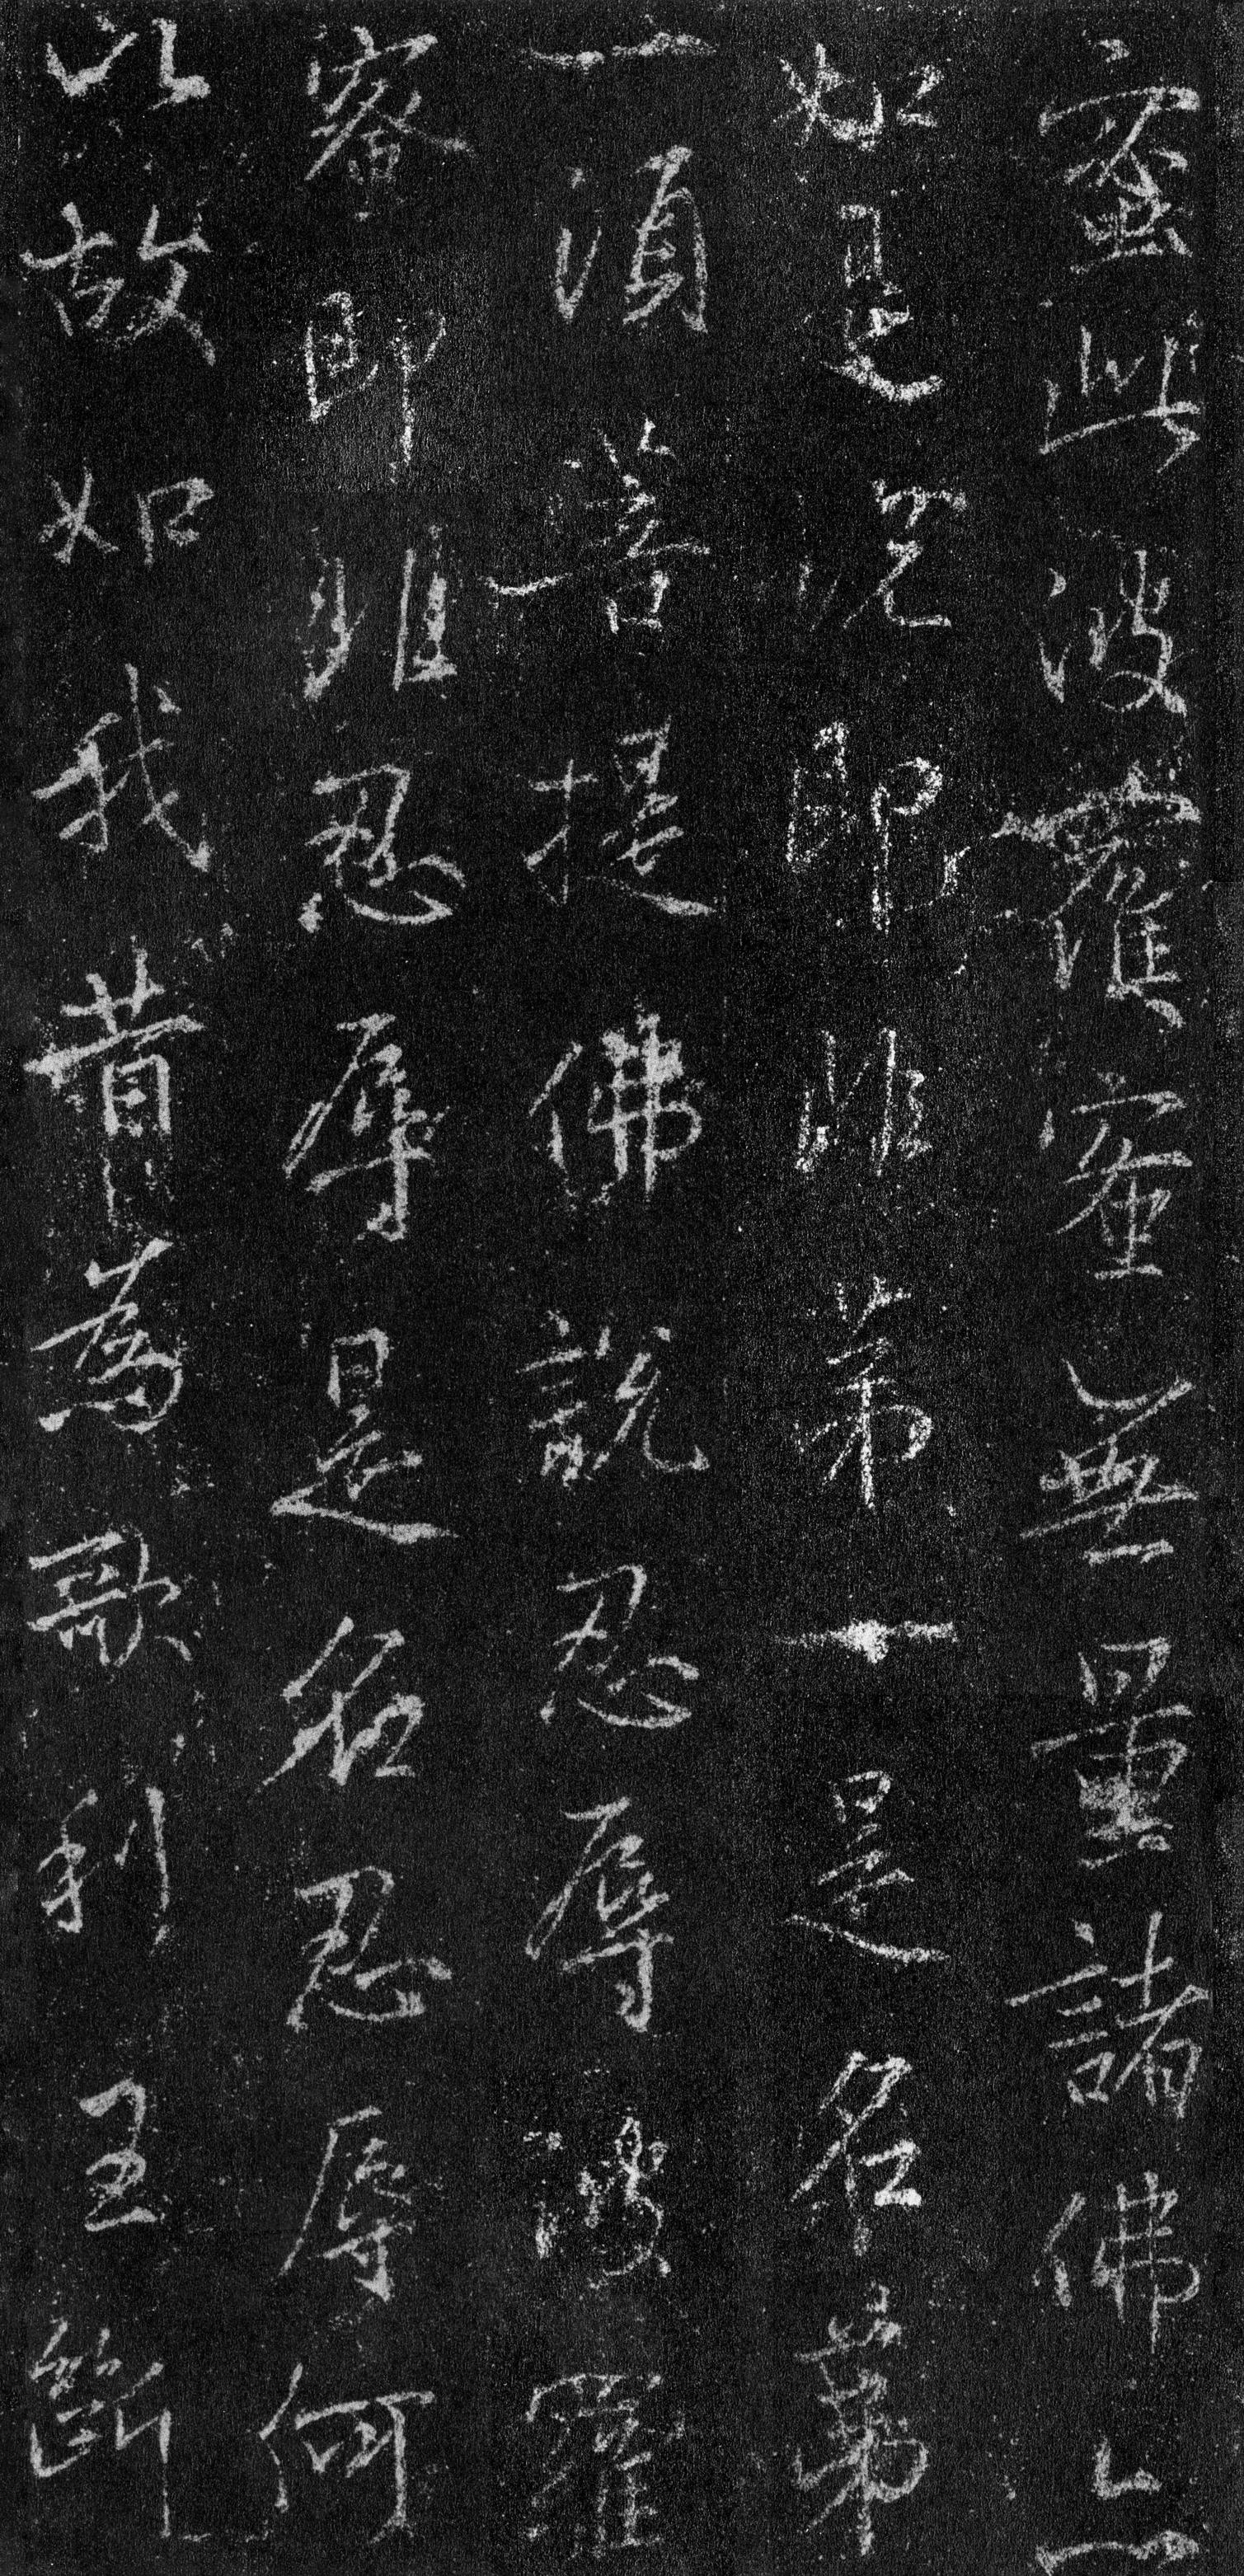 蜜此波羅蜜無量諸佛
如是說即非第一是名第
一須菩提佛說忍辱波羅
蜜即非忍辱是名忍辱何
以故如我昔為歌利王斷